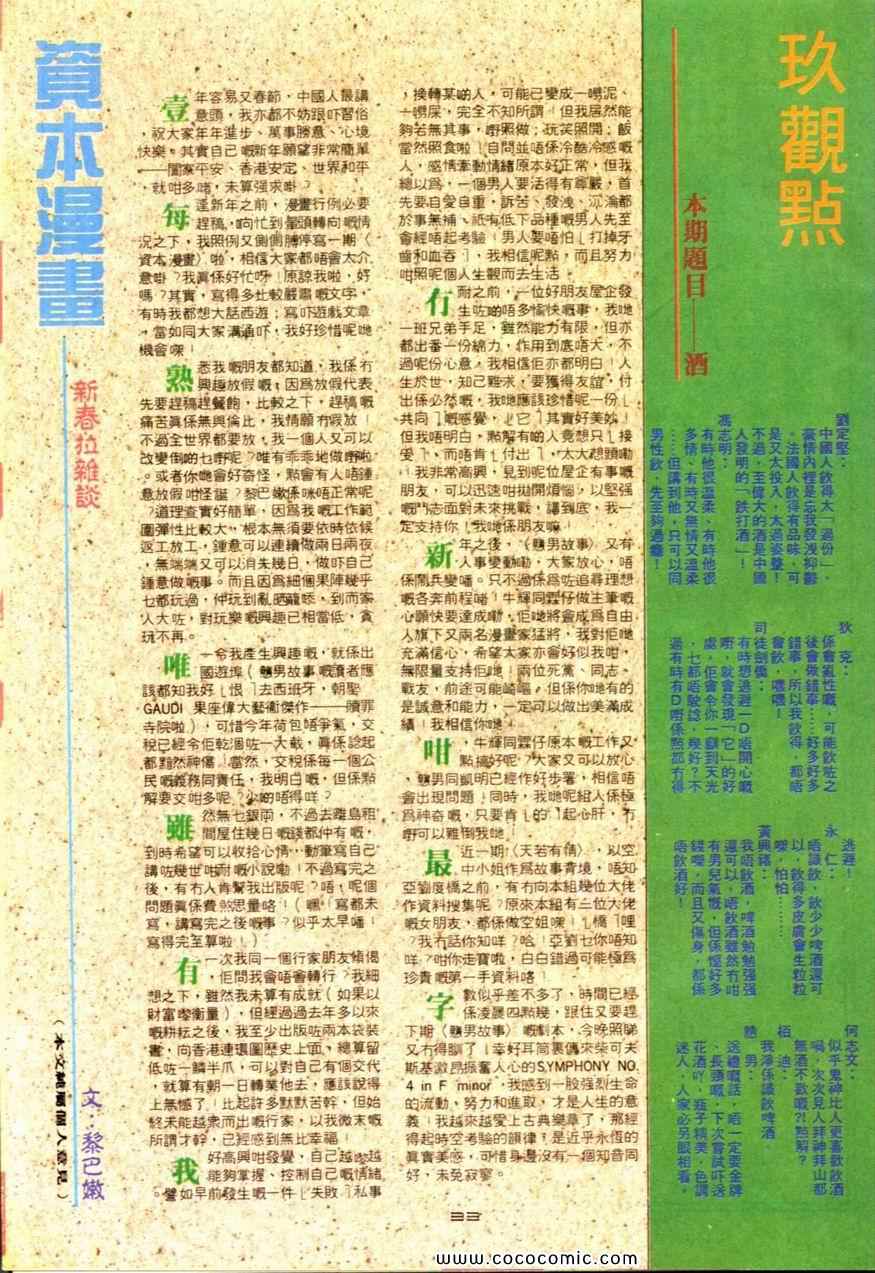 資本漫畫
新春拉雜談
文：黎巴嫩
（本文純屬個人意見）
壹年容易又春節，中國人最講
意頭，我亦都不妨跟吓習俗
，祝大家年年進步、萬事勝意、心境
快樂。其實自己嘅新年願望非常簡單
——闔家平安、香港安定、世界和平
，就咁多啫，未算强求啩？
每逢新年之前，漫畫行例必要
趕稿，响忙到暈頭轉向嘅情
況之下，我照例又側側膊停寫一期（
資本漫畫）啦，相信大家都唔會太介
意啩？我眞係好忙呀！原諒我啦，好
嗎？其實，寫得多比較嚴肅嘅文字，
有時我都想大話西遊；寫吓遊戲文章
，當如同大家溝通吓，我好珍惜呢哋
機會㗎！
熟悉我嘅朋友都知道，我係冇
興趣放假嘅，因爲放假代表
先要趕稿趕餐飽，比較之下，趕稿嘅
痛苦眞係無與倫比，我情願冇假放！
不過全世界都要放，我一個人又可以
改變倒啲乜嘢呢？唯有乖乖地做嘢啦
。或者你哋會好奇怪，點會有人唔鍾
意放假咁怪誕？黎巴嫩係咪唔正常呢
？道理查實好簡單，因爲我嘅工作範
圍彈性比較大，根本無須要依時依候
返工放工，鍾意可以連續做兩日兩夜
，無端端又可以消失幾日，做吓自己
鍾意做嘅事。而且因爲細個果陣幾乎
乜都玩過，仲玩到亂晒籠㖭，到而家
人大咗，對玩樂嘅興趣已相當低，貪
玩不再。
唯一令我產生興趣嘅，就係出
國遊埠（戇男故事嘅讀者應
該都知我好﹂恨﹁去西班牙，朝聖
GAUDI 果座偉大藝術傑作——贖罪
寺院啦），可惜今年荷包唔爭氣，交
稅已經令佢乾涸咗一大截，眞係諗起
都黯然神傷。當然，交稅係每一個公
民嘅義務同責任，我明白嘅，但係點
解要交咁多呢？少啲唔得咩？
雖然無七銀両，不過去離島租
間屋住幾日嘅錢都仲有嘅，
到時希望可以收拾心情，動筆寫自己
講咗幾世咁耐嘅小說嘞！不過寫完之
後，有冇人肯幫我出版呢？唔，呢個
問題眞係費煞思量咯！（嘿，寫都未
寫，講寫完之後嘅事？似乎太早噃！
寫得完至算啦！）
有一次我同一個行家朋友傾偈
，佢問我會唔會轉行？我細
想之下，雖然我未算有成就（如果以
財富嚟衡量），但經過過去年多以來
嘅耕耘之後，我至少出版咗兩本袋裝
書，向香港連環圖歷史上面，總算留
低咗一鱗半爪，可以對自己有個交代
，就算有朝一日轉業他去，應該說得
上無憾了！比起許多默默苦幹，但始
終未能越衆而出嘅行家，以我微末嘅
所謂才幹，已經感到無比幸福！
我好高興咁發覺，自己越嚟越
能夠掌握、控制自己嘅情緒
。譬如早前發生嘅一件﹂失敗﹁私事
，換轉某啲人，可能已變成一嚿泥、
一嚿屎，完全不知所謂！但我居然能
夠若無其事，嘢照做；玩笑照開；飯
當然照食啦！自問並唔係冷酷冷感嘅
人，感情牽動情緒原本好正常，但我
總以爲，一個男人要活得有尊嚴，首
先要自愛自重，訴苦、發洩、沉淪都
於事無補，祇有低下品種嘅男人先至
會經唔起考驗！男人要唔怕﹂打掉牙
齒和血吞﹁，我相信呢點，而且努力
咁照呢個人生觀而去生活。
冇耐之前，一位好朋友屋企發
生咗啲唔多愉快嘅事，我哋
一班兄弟手足，雖然能力有限，但亦
都出番一份綿力，作用到底唔大，不
過呢份心意，我相信佢亦都明白！人
生於世，知己難求，要獲得友誼，付
出係必然嘅，我哋應該珍惜呢一份﹂
共同﹁嘅感覺，﹂它﹁其實好美妙！
但我唔明白，點解有啲人竟想只﹂接
受﹁，而唔肯﹂付出﹁，太大想頭嘞
！我非常高興，見到呢位屋企有事嘅
朋友，可以迅速咁拋開煩惱，以堅强
嘅鬥志面對未來挑戰，講到底，我一
定支持你！我哋係朋友嘛！
新年之後，（戇男故事）又有
人事變動嘞，大家放心，唔
係鬧兵變噃。只不過係爲咗追尋理想
嘅各奔前程啫！牛輝同霖仔做主筆嘅
心願快要達成嘞，佢哋將會成爲自由
人旗下又兩名漫畫家猛將，我對佢哋
充滿信心，希望大家亦會好似我咁，
無限量支持佢哋！兩位死黨、同志、
戰友，前途可能崎嶇，但係你哋有的
是誠意和能力，一定可以做出美滿成
績！我相信你哋！
咁，牛輝同霖仔原本嘅工作又
點搞好呢？大家又可以放心
，戇男同凱明已經作好步署，相信唔
會出現問題！同時，我哋呢組人係極
爲神奇嘅，只要肯﹂的﹁起心肝，冇
嘢可以難倒我哋！
最近一期（天若有情），以空
中小姐作爲故事背境，唔知
亞劉度橋之前，有冇向本組幾位大佬
作資料搜集呢？原來本組有三位大佬
嘅女朋友，都係做空姐㗎！﹂橋﹁哩
？我冇話你知咩？哈！亞劉乜你唔知
咩？咁你走寶啦，白白錯過可能極爲
珍貴嘅第一手資料咯！
字數似乎差不多了，時間已經
係凌晨四點幾，跟住又要趕
下期（戇男故事）嘅劇本，今晚照睇
又冇得瞓了！幸好耳筒裏傳來柴可夫
斯基激昂振奮人心的SYMPHONY NO.
4 in F minor，我感到一股强烈生命
的流動、努力和進取，才是人生的意
義！我越來越愛上古典樂章了，那經
得起時空考驗的韻律，是近乎永恆的
眞實美感，可惜身邊沒有一個知音同
好，未免寂寥。
玖觀點
本期題目——酒
劉定堅：
中國人飲得太「過份」，
豪情內裡是忘我發洩抑鬱
。法國人飲得有品味，可
是又太投入，太過姿整！
不過，至偉大的酒是中國
人發明的「跌打酒」！
馮志明：
有時他很溫柔，有時他很
多情，有時又無情又溫柔
……但講到他，只可以同
男性飲，先至夠過癮！
狄　克：
係會亂性嘅，可能飲咗之
後會做錯事……好多好多
錯事，所以我飲得，都唔
會飲，嘿嘿！
司徒劍僑：
有時想逃避一D唔開心嘅
嘢，就會發現「它」的好
處，佢會令你一瞓到天光
，乜都唔駛諗，幾好？不
過有時有D嘢係點都冇得
逃避！
永　仁：
唔識飲，飲少少啤酒還可
以，飲得多皮膚會生粒粒
㗎，怕怕……
黃興緒：
我唔飲酒，啤酒勉勉强强
還可以，唔飲酒雖然冇咁
有男兒氣慨，但係慳好多
錢㗎，而且又傷身，都係
唔飲酒好！
何志文：
似乎鬼神比人更喜歡飲酒
喎，次次見人拜神拜山都
無酒不歡嘅?!點解？
栢　迪：
我淨係識飲啤酒
戇　男：
送禮嘅話，唔一定要金牌
、長頸嘅，下次嘗試吓送
花酒吖，瓶子精美，色調
迷人，人家必另眼相看。
33
www.cococomic.com